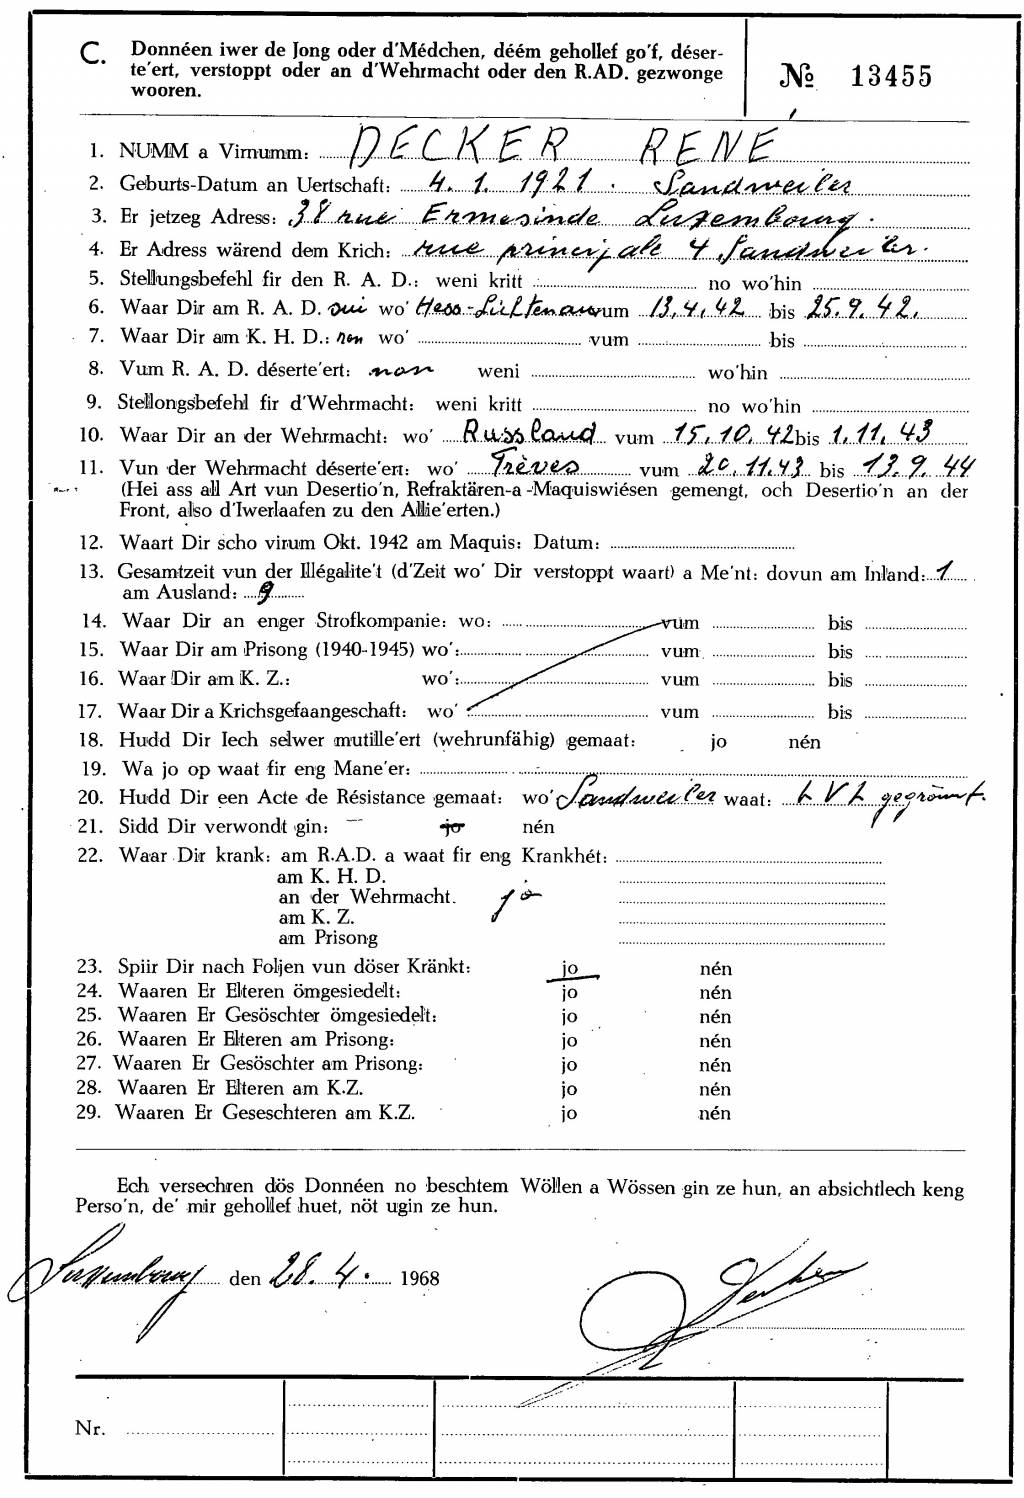 C. Donnéen iwer de Jong oder d'Médchen, déém gehollef go'f, déser-
te'ert, verstoppt oder an d'Wehrmacht oder den R.AD. gezwonge
wooren.
№ 13455
1. NUMM a Virnumm: DECKER RENÉ
2. Geburts-Datum an Uertschaft: 4. 1. 1921. Sandweiler
3. Er jetzeg Adress: 38 rue Ermesinde Luxembourg.
4. Er Adress wärend dem Krich: rue principale 4 Sandweiler.
5. Stellungsbefehl fir den R. A. D.: weni kritt no wo'hin
6. Waar Dir am R. A. D. oui wo' Hess-Lichtenau vum 13.4.42 bis 25.9.42.
7. Waar Dir am K. H. D.: non wo' vum bis
8. Vum R. A. D. déserte'ert: non weni wo'hin
9. Stellongsbefehl fir d'Wehrmacht: weni kritt no wo'hin
10. Waar Dir an der Wehrmacht: wo' Russland vum 15.10.42 bis 1.11.43
11. Vun der Wehrmacht déserte'ert: wo' Trèves vum 20.11.43 bis 13.9.44
(Hei ass all Art vun Desertio'n, Refraktären-a-Maquiswiésen gemengt, och Desertio'n an der
Front, also d'Iwerlaafen zu den Allie'erten.)
12. Waart Dir scho virum Okt. 1942 am Maquis: Datum:
13. Gesamtzeit vun der Illégalite't (d'Zeit wo' Dir verstoppt waart) a Me'nt: dovun am Inland: 1
am Ausland: 9
14. Waar Dir an enger Strofkompanie: wo: vum bis
15. Waar Dir am Prisong (1940-1945) wo': vum bis
16. Waar Dir am K. Z.: wo': vum bis
17. Waar Dir a Krichsgefaangeschaft: wo' vum bis
18. Hudd Dir Iech selwer mutille'ert (wehrunfähig) gemaat: jo nén
19. Wa jo op waat fir eng Mane'er:
20. Hudd Dir een Acte de Résistance gemaat: wo' Sandweiler waat: LVL gegrönnt.
21. Sidd Dir verwondt gin: — jo nén
22. Waar Dir krank: am R.A.D. a waat fir eng Krankhét:
am K. H. D.
an der Wehrmacht. jo
am K. Z.
am Prisong
23. Spiir Dir nach Foljen vun döser Kränkt: jo nén
24. Waaren Er Elteren ömgesiedelt: jo nén
25. Waaren Er Gesöschter ömgesiedelt: jo nén
26. Waaren Er Elteren am Prisong: jo nén
27. Waaren Er Gesöschter am Prisong: jo nén
28. Waaren Er Elteren am K.Z. jo nén
29. Waaren Er Geseschteren am K.Z. jo nén
Ech versechren dös Donnéen no beschtem Wöllen a Wössen gin ze hun, an absichtlech keng
Perso'n, de' mir gehollef huet, nöt ugin ze hun.
Luxembourg den 28. 4. 1968
Nr.